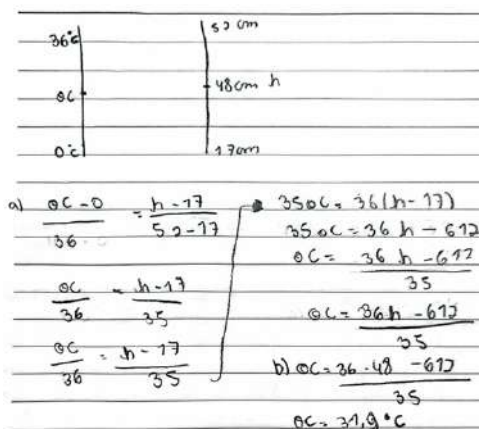 36°C 52 cm
θC 48cm h
0°C 17cm
a) θC - 0 / 36 - 0 = h - 17 / 52 - 17
θC / 36 = h - 17 / 35
θC / 36 = h - 17 / 35
35θC = 36(h - 17)
35θC = 36h - 612
θC = 36h - 612 / 35
θC = 36h - 612 / 35
b) θC = 36 · 48 - 612 / 35
θC = 31,9 °C